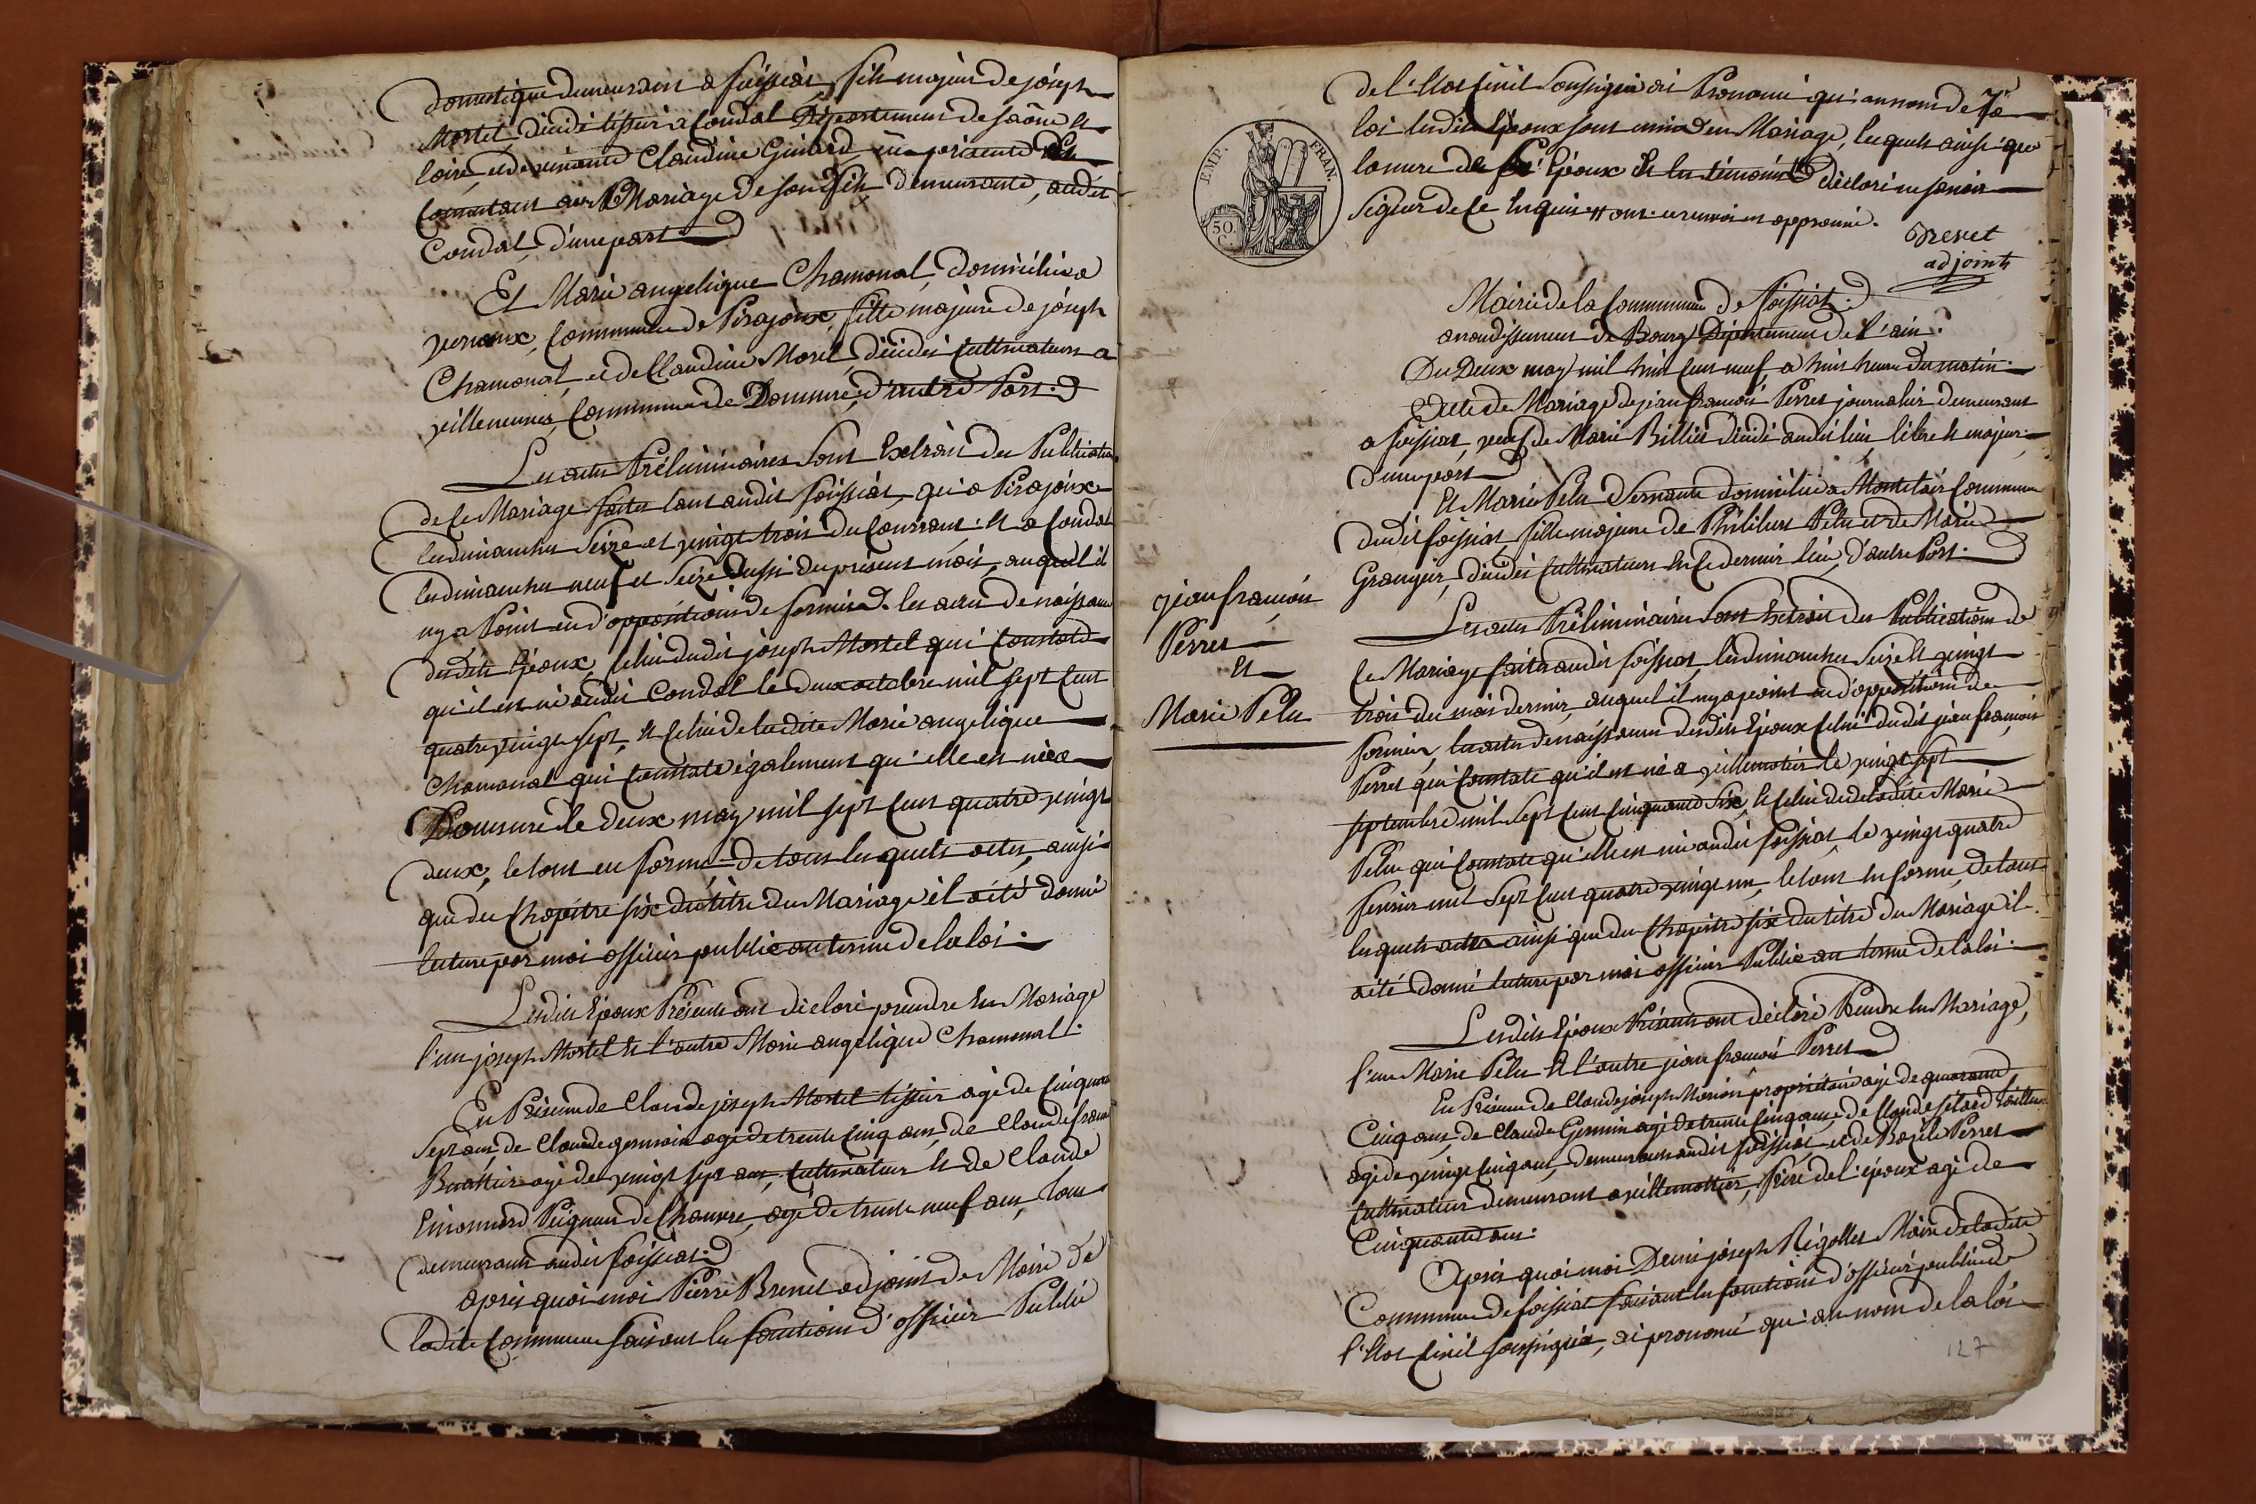 domestique demeurant a foissiat, fils majeur de joseph
Mortel décédé tissier a Condal Département de Saône et
loire, et de vivante Claudine Guilard ici présente et
Consentant au Mariage de son fils, demeurante, audit
Condal, d'une part.
Et Marie angelique Chamonal, domiciliée a
vernoux, Commune de Pirajoux, fille majeure de joseph
Chamonal, et de Claudine Morel, décédés Cultivateurs a
villeneuve, Commune de Domsure, d'autre Part.
Les actes Préliminaires sont Extrait des Publications
de Ce Mariage faites tant audit foissiat, qu'a Pirajoux
les dimanches Seize et vingt trois du Courrant, et a Condal
les dimanches neuf et Seize aussi du présent mois, auquel il
ny a Point eu d'oppositions de formée. les actes de naissance
desdits Epoux, Celui dudit joseph Mortel qui Constate
qu'il est né audit Condal le deux octobre mil sept Cent
quatre vingt sept, et Celui de ladite Marie angelique
Chamonal qui Constate également qu'elle est née a
Domsure le deux may mil sept Cent quatre vingt
deux, le tout en forme, de tous lesquels actes, ainsi
que du Chapitre six du titre du Mariage il a été donné
lecture par moi officier public au terme de la loi.
Lesdits Epoux Présents ont déclaré prendre En Mariage
l'un joseph Mortel et l'autre Marie angelique Chamonal.
En Présence de Claude joseph Mortel tissier agé de Cinquante
Sept ans, de Claude germain agé de trente Cinq ans, de Claude francois
agé de vingt sept ans, Cultivateur et de Claude
Peigneur de Chanvre, agé de trente neuf ans, tous
demeurants audit foissiat.
après quoi moi Pierre Brevet adjoint de Maire de
ladite Commune faisant les fonctions d'officier Public
de l'Etat Civil Soussigné ai Prononcé qu'au nom de la
loi lesdits Epoux sont unis en Mariage, lesquels ainsi que
la mere de l'Epoux et les témoins ont déclaré ne savoir
Signer de Ce Enquis
EMP. FRAN.
50. C.
Brevet
adjoint
Mairie de la Commune de foissiat.
arrondissement de Bourg Département de l'ain.
Du Deux may mil huit Cent neuf, a huit heures du matin.
Acte de Mariage de jean francois Perret journalier demeurant
a foissiat, veuf de Marie Billiet décédé audit lieu libre et majeur
d'une part
Et Marie Pelu Servante domiciliée a Montelair Commune
dudit foissiat fille majeure de Philibert Pelu et de Marie
Granger, décédés Cultivateurs En Ce dernier lieu, d'autre Part.
jean francois
Perret
Et
Marie Pelu
Les actes Préliminaires sont Extrait des Publications de
Ce Mariage faites audit foissiat, les dimanches Seize et vingt
trois du mois dernier, auquel il ny a point eu d'opposition de
formée, les actes de naissance desdits Epoux Celui dudit jean francois
Perret qui Constate qu'il est né a villemotier le vingt sept
septembre mil sept Cent Cinquante Six, et Celui de de ladite Marie
Pelu qui Constate qu'elle est née audit foissiat, le vingt quatre
fevrier mil Sept Cent quatre vingt un, le tout En forme, de tous
lesquels actes ainsi que du Chapitre six du titre du Mariage il
a été donné lecture par moi officier Public au terme de la loi.
Lesdits Epoux Présents ont déclaré Prendre En Mariage,
l'un Marie Pelu Et l'autre jean francois Perret
En Présence de Claude joseph Morion propriétaire agé de quarante
Cinq ans, de Claude Germain agé de trente Cinq ans, de Claude tailleur
agé de vingt Cinq ans, demeurants audit foissiat et de Basile Perret
Cultivateur demeurant a villemottier, frère de l'époux agé de
Cinquante ans.
Après quoi moi Denis joseph Rigollet Maire de ladite
Commune de foissiat faisant les fonctions d'officier public de
l'Etat Civil soussigné, ai prononcé qu'au nom de la loi
127